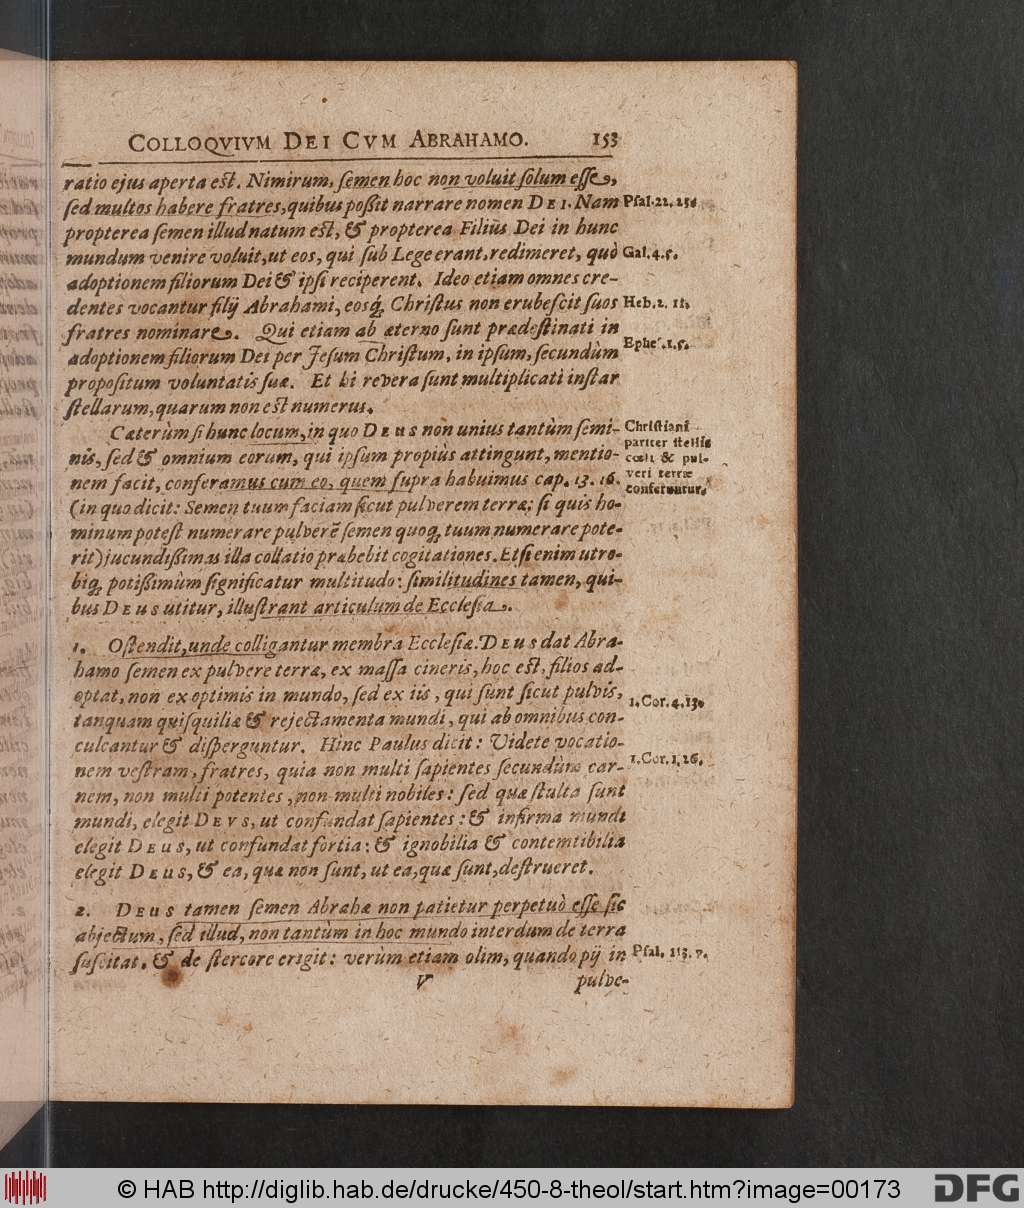 COLLOQVIVM DEI CVM ABRAHAMO. 153
ratio ejus aperta est. Nimirum, semen hoc non voluit solum esse,
sed multos habere fratres, quibus possit narrare nomen DEI. Nam
Psal. 22. 23.
propterea semen illud natum est, & propterea Filius Dei in hunc
mundum venire voluit, ut eos, qui sub Lege erant, redimeret, quò
Gal. 4. 5.
adoptionem filiorum Dei & ipsi reciperent. Ideo etiam omnes cre-
dentes vocantur filij Abrahami, eosq́; Christus non erubescit suos
Heb. 2. 11.
fratres nominare. Qui etiam ab æterno sunt prædestinati in
Ephes. 1. 5.
adoptionem filiorum Dei per Jesum Christum, in ipsum, secundùm
propositum voluntatis suæ. Et hi revera sunt multiplicati instar
stellarum, quarum non est numerus.
Cæterùm si hunc locum, in quo DEUS non unius tantùm semi-
nis, sed & omnium eorum, qui ipsum propiùs attingunt, mentio-
nem facit, conferamus cum eo, quem supra habuimus cap. 13. 16.
Christiani
pariter stellis
cœli & pul-
veri terræ
conferuntur.
(in quo dicit: Semen tuum faciam sicut pulverem terræ; si quis ho-
minum potest numerare pulverē semen quoq́; tuum numerare pote-
rit) jucundissimas illa collatio præbebit cogitationes. Etsi enim utro-
biq́; potissimùm significatur multitudo: similitudines tamen, qui-
bus DEUS utitur, illustrant articulum de Ecclesia.
1. Ostendit, unde colligantur membra Ecclesiæ. DEUS dat Abra-
hamo semen ex pulvere terræ, ex massa cineris, hoc est, filios ad-
optat, non ex optimis in mundo, sed ex iis, qui sunt sicut pulvis,
tanquam quisquiliæ & rejectamenta mundi, qui ab omnibus con-
1. Cor. 4. 13.
culcantur & disperguntur. Hinc Paulus dicit: Videte vocatio-
nem vestram, fratres, quia non multi sapientes secundùm car-
1. Cor. 1. 26.
nem, non multi potentes, non multi nobiles: sed quæ stulta sunt
mundi, elegit DEVS, ut confundat sapientes: & infirma mundi
elegit DEUS, ut confundat fortia: & ignobilia & contemtibilia
elegit DEUS, & ea, quæ non sunt, ut ea, quæ sunt, destrueret.
2. DEUS tamen semen Abrahæ non patietur perpetuò esse sic
abjectum, sed illud, non tantùm in hoc mundo interdum de terra
suscitat, & de stercore erigit: verùm etiam olim, quando pij in
Psal. 113. 7.
V pulve-
© HAB http://diglib.hab.de/drucke/450-8-theol/start.htm?image=00173
DFG